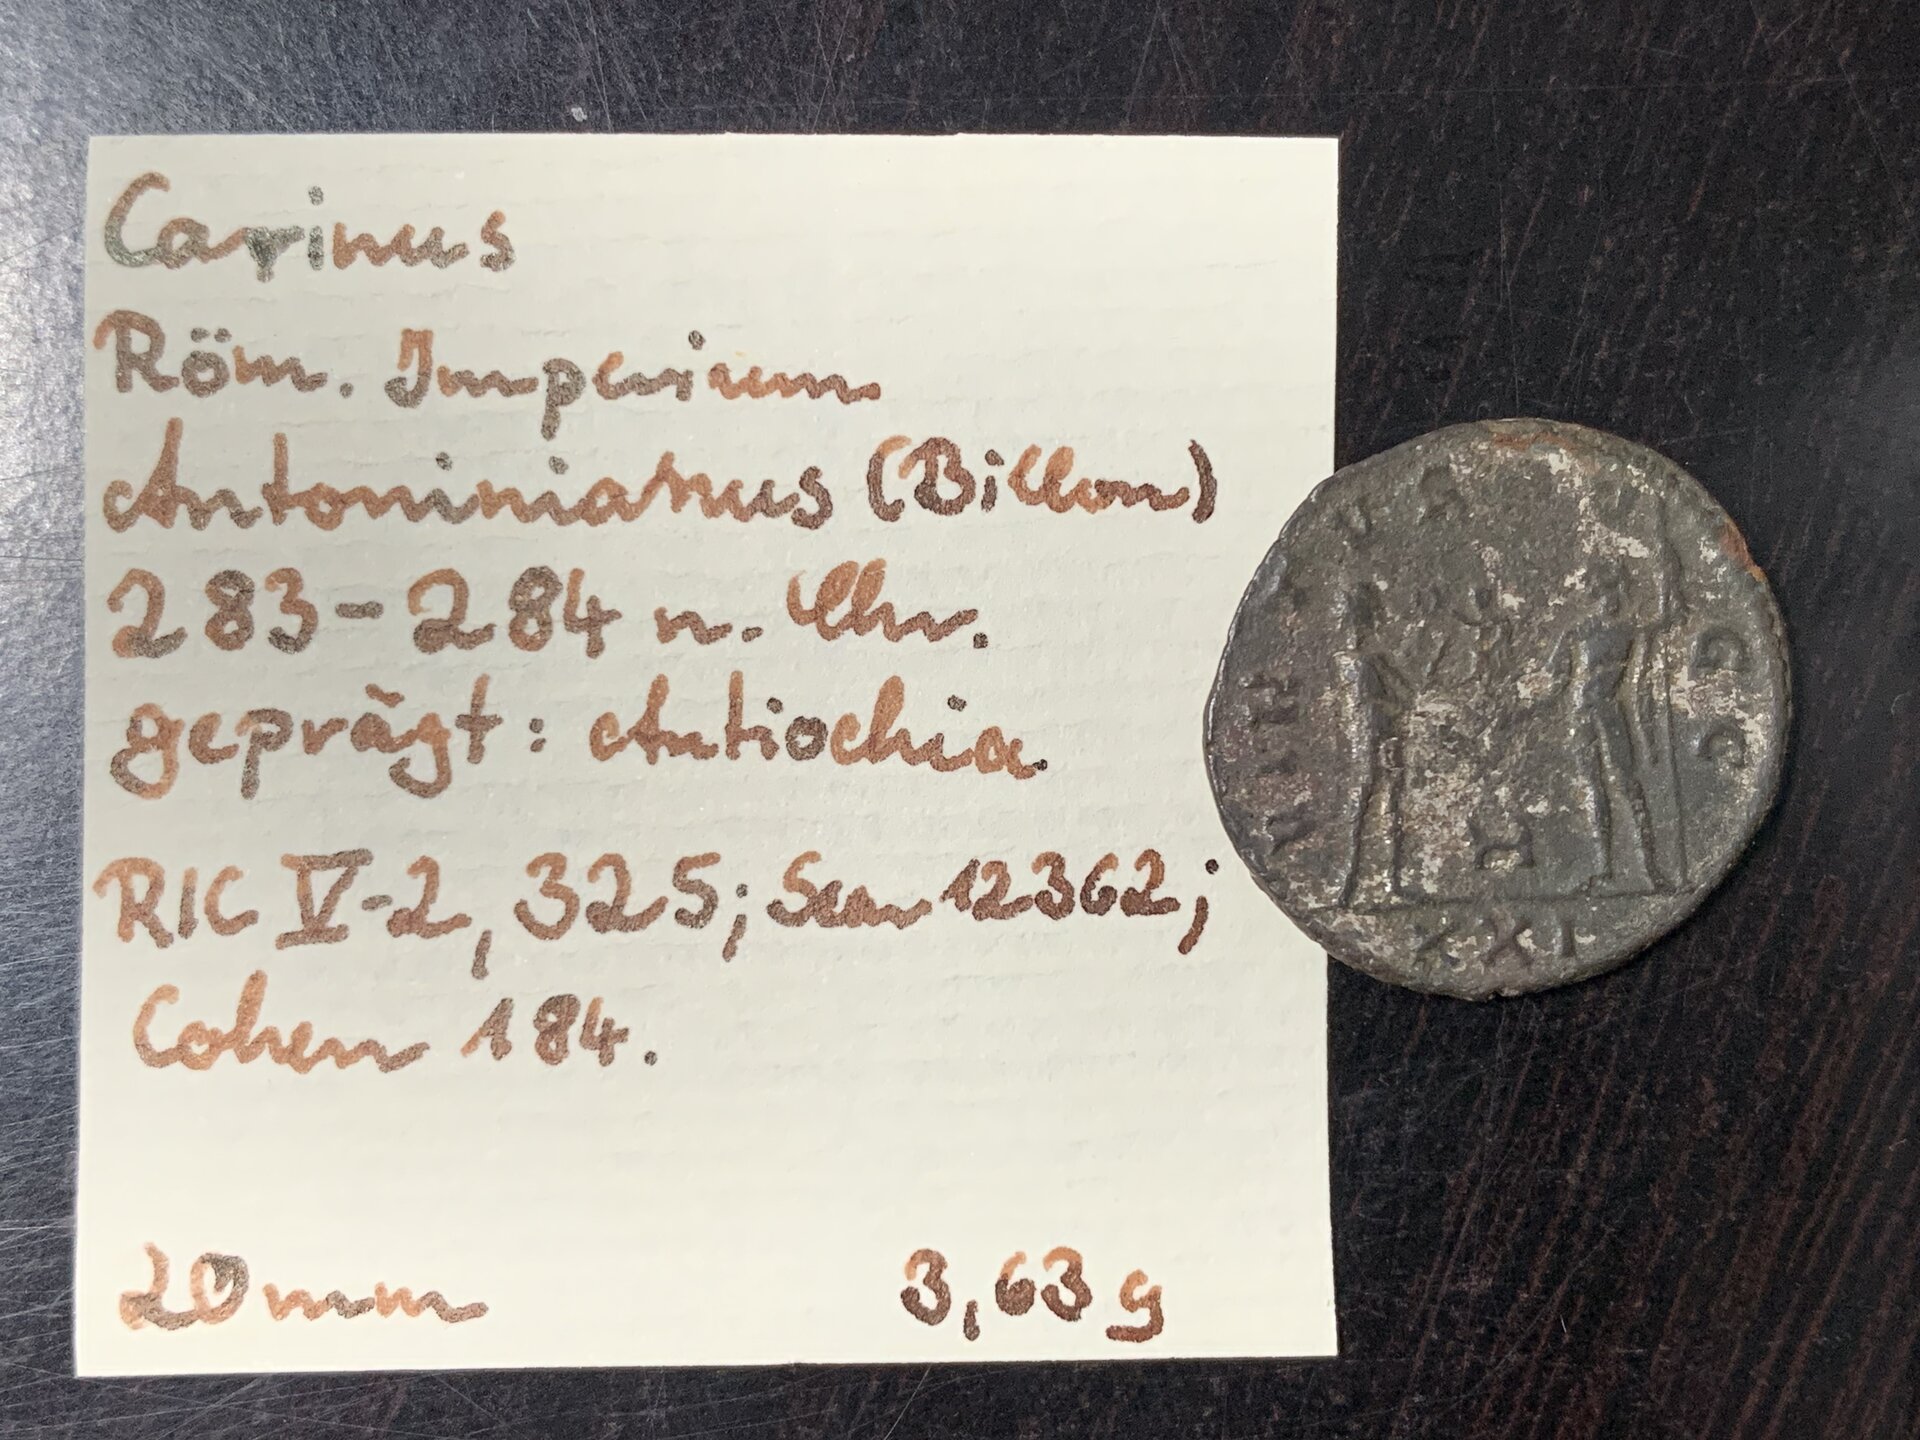 Carinus
Röm. Imperium
Antoninianus (Billon)
283-284 n. Chr.
geprägt: Antiochia
RIC V-2, 325; Sear 12362;
Cohen 184.
20mm 3,63g
XXI